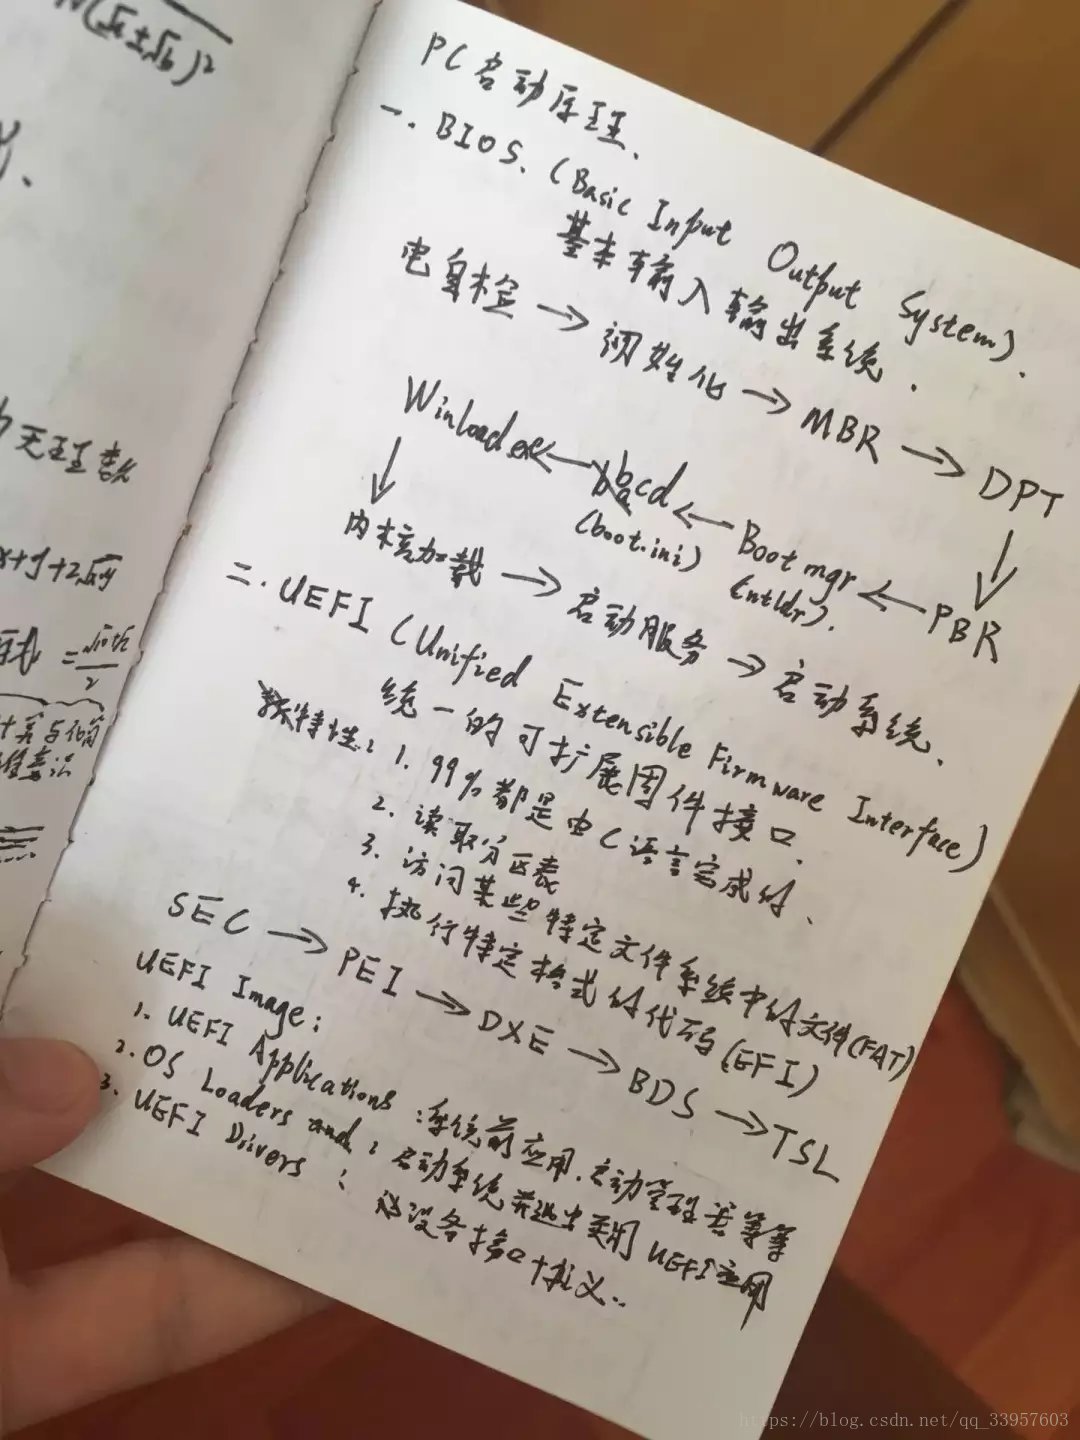 无理数
x+y+2√xy
PC启动原理.
一. BIOS. (Basic Input Output System).
基本输入输出系统.
电自检 → 初始化 → MBR → DPT
Winload.exe ← bcd ← Bootmgr ← PBR
(boot.ini) (ntldr).
内核加载 → 启动服务 → 启动系统.
二. UEFI (Unified Extensible Firmware Interface)
统一的可扩展固件接口.
特性: 1. 99%都是由C语言完成的.
2. 读取分区表
3. 访问某些特定文件系统中的文件(FAT)
4. 执行特定格式的代码(EFI)
SEC → PEI → DXE → BDS → TSL
UEFI Image:
1. UEFI Applications: 系统前应用. 启动管理器等等
2. OS Loaders and: 启动系统并退出 UEFI应用
3. UEFI Drivers: 设备接口
https://blog.csdn.net/qq_33957603